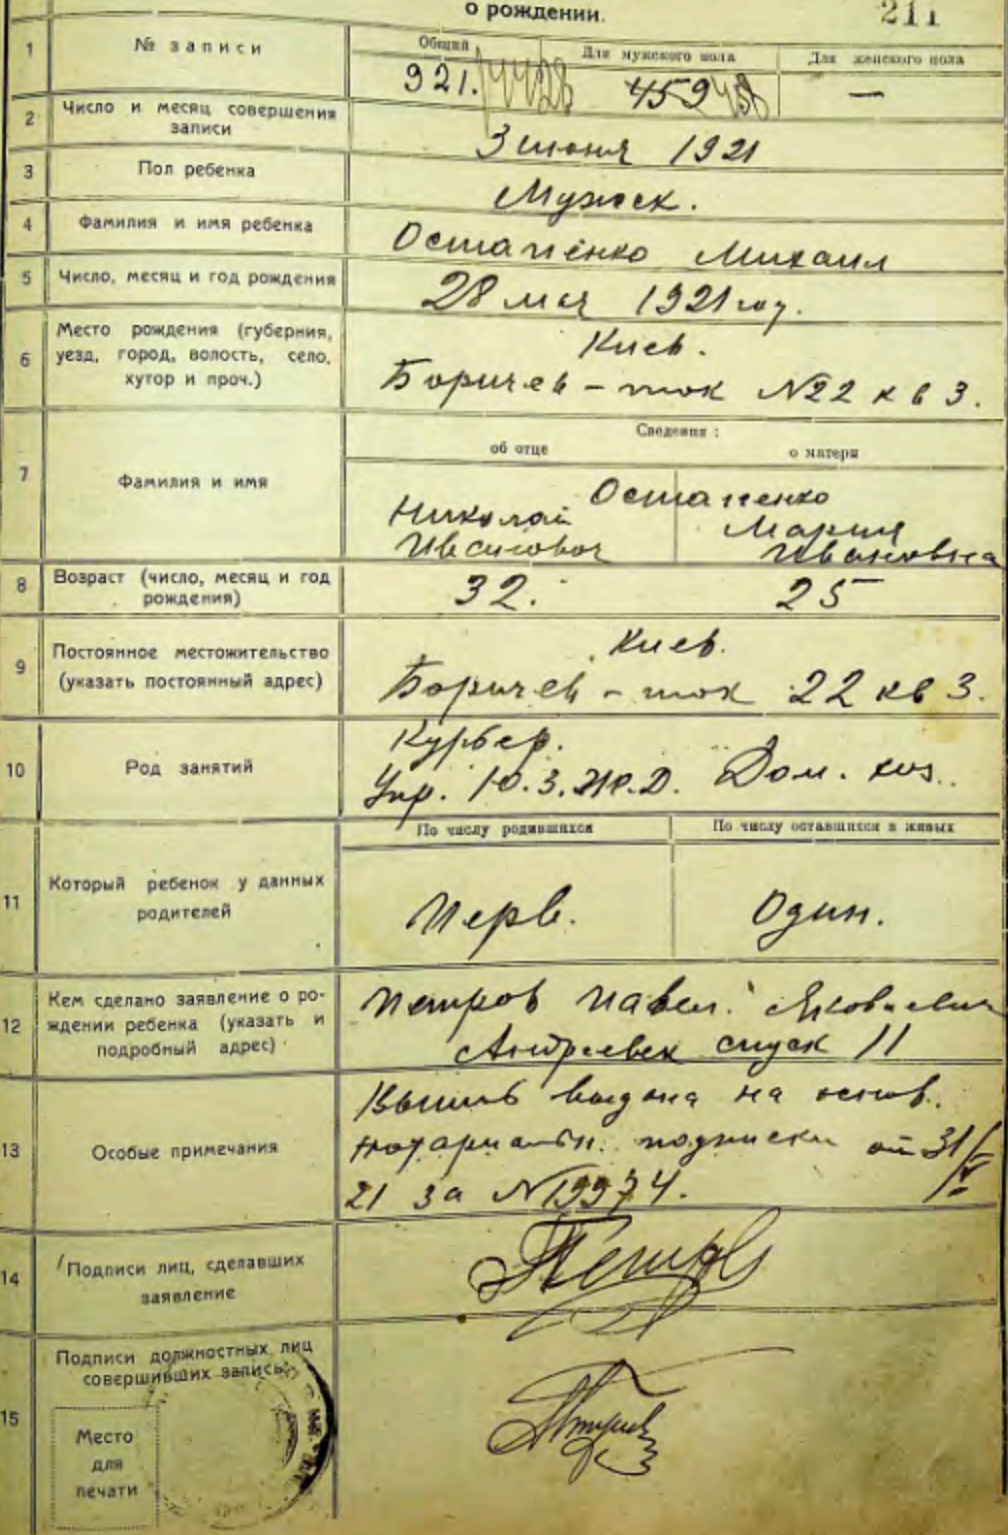 о рождении.
211
1
№ записи
Общий
Для мужского пола
Для женского пола
921.
459
—
2
Число и месяц совершения
записи
3 июня 1921
3
Пол ребенка
Мужск.
4
Фамилия и имя ребенка
Остапенко Михаил
5
Число, месяц и год рождения
28 мая 1921 году.
6
Место рождения (губерния,
уезд, город, волость, село,
хутор и проч.)
Киев.
Боричев - ток №22 кв 3.
Сведения:
об отце
о матери
7
Фамилия и имя
Остапенко
Николай
Иванович
Мария
Ивановна
8
Возраст (число, месяц и год
рождения)
32.
25
9
Постоянное местожительство
(указать постоянный адрес)
Киев.
Боричев - ток 22 кв 3.
10
Род занятий
Курьер.
Упр. Ю.З.Ж.Д.
Дом. хоз.
По числу родившихся
По числу оставшихся в живых
11
Который ребенок у данных
родителей
Перв.
Один.
12
Кем сделано заявление о ро-
ждении ребенка (указать и
подробный адрес)
Петров Павел Яковлевич
Андреевск спуск 11
13
Особые примечания
выдана на основ.
нотариальн. подписки от 31/V
21 за №19974.
14
Подписи лиц, сделавших
заявление
Петров
15
Подписи должностных лиц
совершивших запись:
Место
для
печати